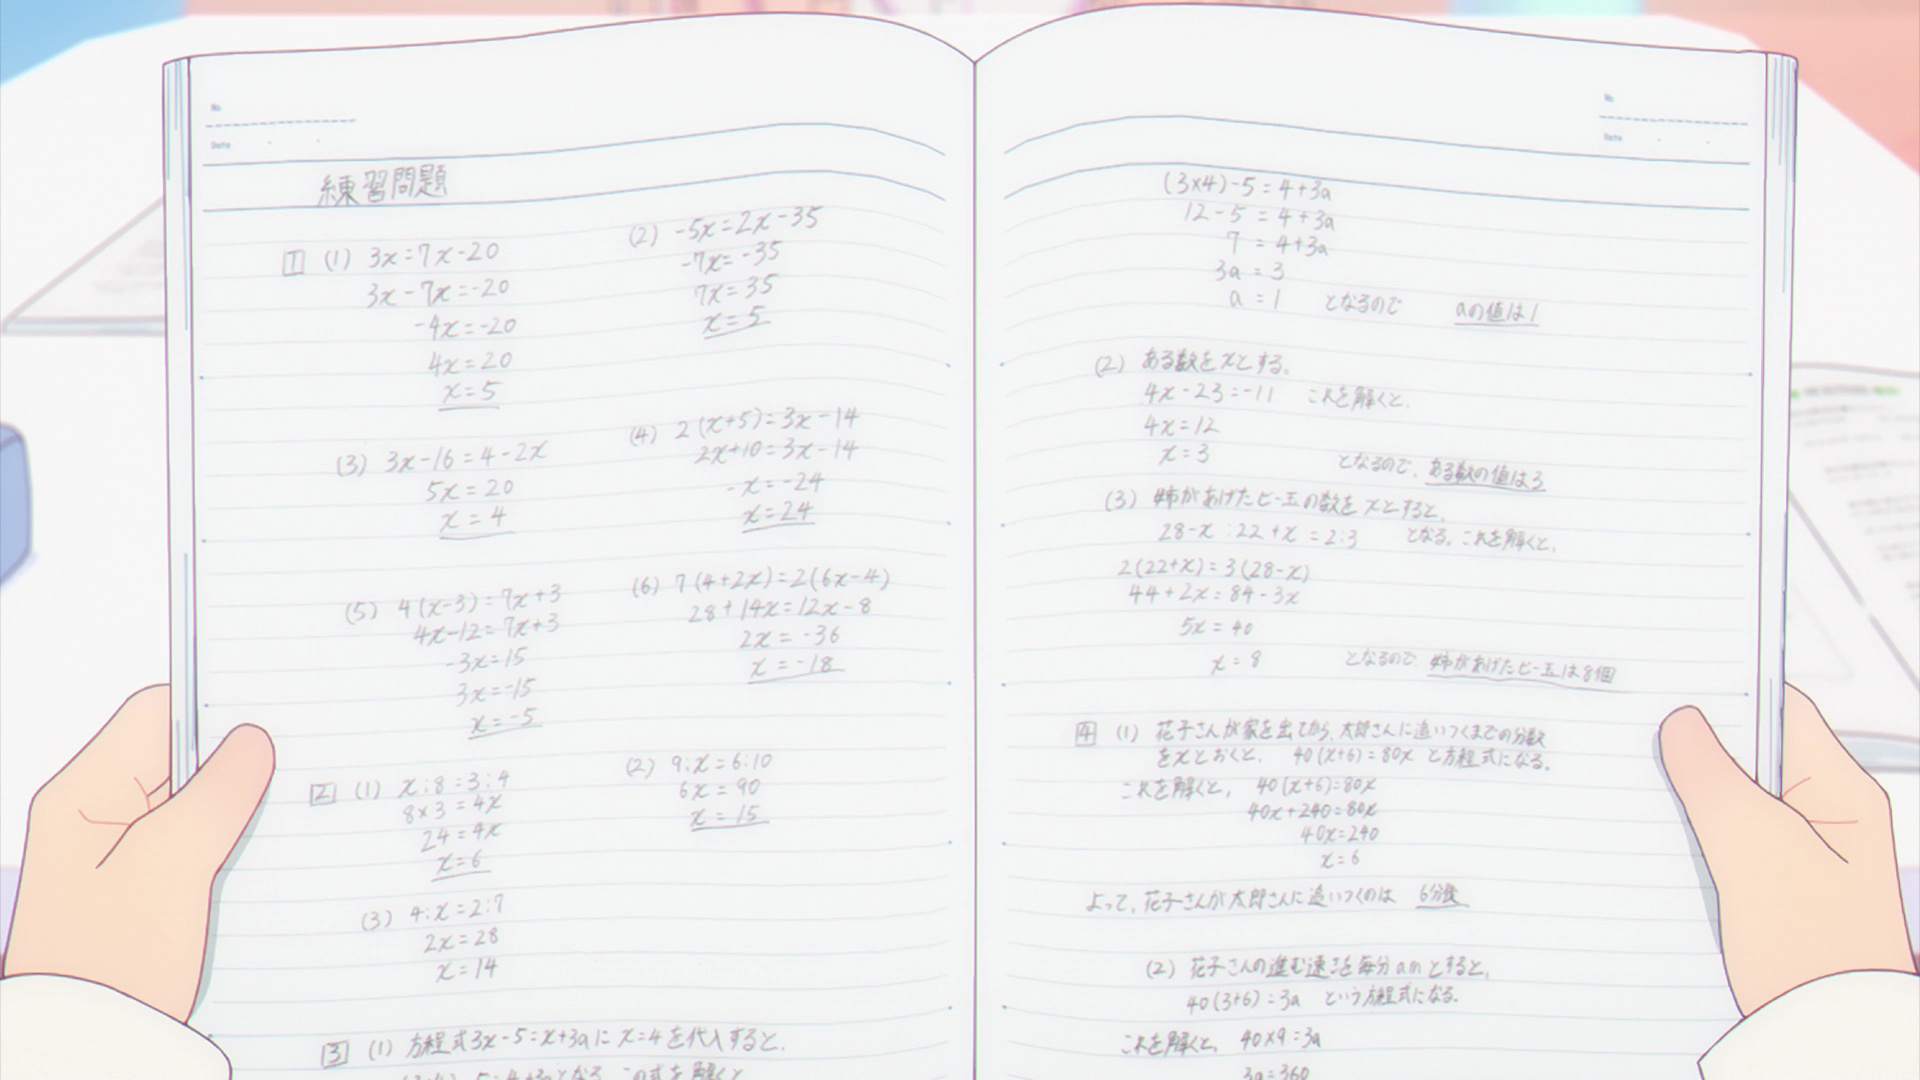 No
Date
練習問題
1 (1) 3x=7x-20
3x-7x=-20
-4x=-20
4x=20
x=5
(2) -5x=2x-35
-7x=-35
7x=35
x=5
(3) 3x-16=4-2x
5x=20
x=4
(4) 2(x+5)=3x-14
2x+10=3x-14
-x=-24
x=24
(5) 4(x-3)=7x+3
4x-12=7x+3
-3x=15
3x=-15
x=-5
(6) 7(4+2x)=2(6x-4)
28+14x=12x-8
2x=-36
x=-18
2 (1) x:8=3:4
8×3=4x
24=4x
x=6
(2) 9:x=6:10
6x=90
x=15
(3) 4:x=2:7
2x=28
x=14
3 (1) 方程式3x-5=x+3aに x=4を代入すると、
(3×4)-5=4+3aとなる この式を解くと
No
Date
(3×4)-5=4+3a
12-5=4+3a
7=4+3a
3a=3
a=1 となるので aの値は1
(2) ある数をxとする。
4x-23=-11 これを解くと、
4x=12
x=3 となるので、ある数の値は3
(3) 姉があげたビー玉の数をxとすると、
28-x:22+x=2:3 となる。これを解くと、
2(22+x)=3(28-x)
44+2x=84-3x
5x=40
x=8 となるので 姉があげたビー玉は8個
4 (1) 花子さんが家を出てから、太郎さんに追いつくまでの分数
をxとおくと、 40(x+6)=80x と方程式になる。
これを解くと、 40(x+6)=80x
40x+240=80x
40x=240
x=6
よって、花子さんが太郎さんに追いつくのは 6分後
(2) 花子さんの進む速さを毎分amとすると、
40(3+6)=3a という方程式になる。
これを解くと、 40×9=3a
3a=360